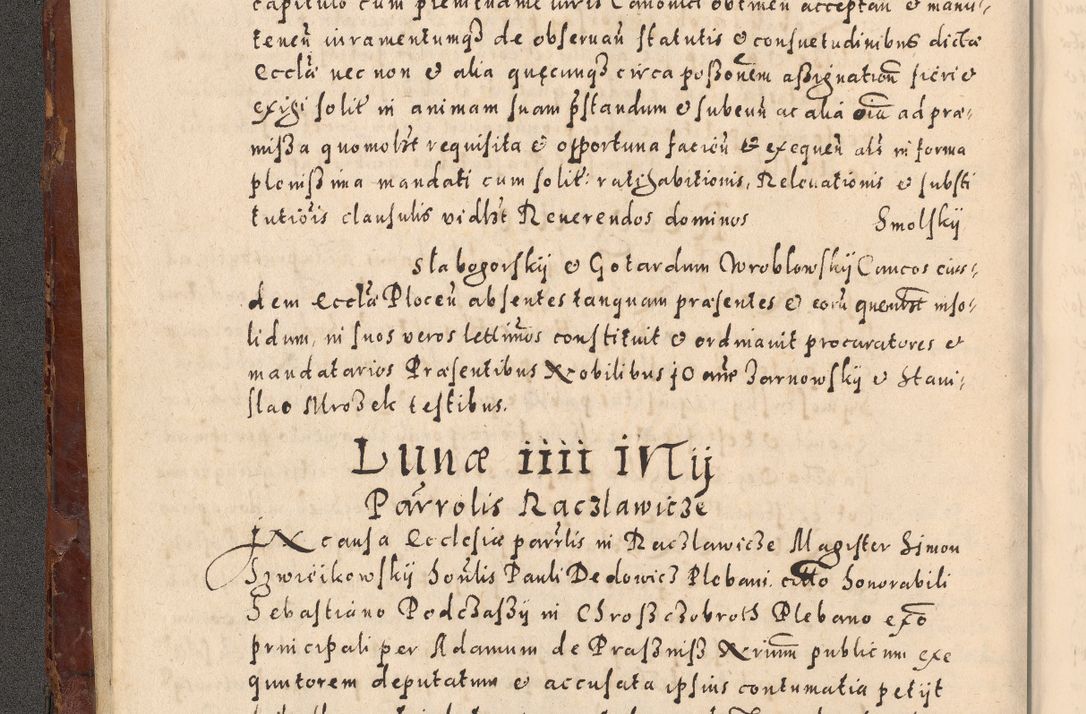 capitulo cum plenitudine iuris Canonici obtineñ acceptañ & manu-
teneñ iuramentumqȝ de obseruañ statutis & consuetudinibus dictæ
Eccłæ nec non & alia quęcunqȝ circa poßonem aßignationē fieri &
exigi solit̃ in animam suam p̃standum & subeuñ ac alia oīa ad præ-
mißa quomołt requisita & opportuna facień & exequeñ als in forma
plenißima mandati cum solit: ratihabitionis, Releuationis & substi
tutiōis clausulis vidłt Reuerendos dominos Smolskij
Slabogorskij & Gotardum Wroblowskij Cancos eius-
dem Eccłæ Ploceñ absentes tanquam præsentes & eorū quemłt inso-
lidum, in suos veros lettimos constituit & ordinauit procuratores &
mandatarios Præsentibus Nobilibus Joanne Zarnowskij & Stani-
slao Mrozek testibus.
Lunæ iiii Julij
Parrolis Raczlawicze
IN causa Ecclesiæ parrlis in Raczlawicze Magister Simon
Szwieikowskij Honlis Pauli Dedowicz Plebani. citto Honorabili
Sebastiano Podczaßij in Chroßczobroth Plebano exō
principali per Adamum de Praßniß Nrium publicum exe
quutorem deputatum & accusata ipsius contumatia petijt